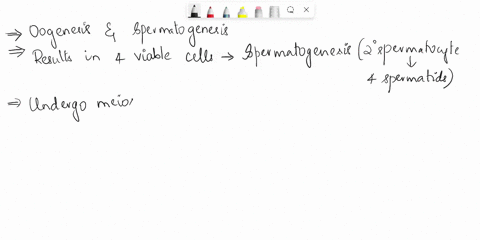 ⇒ Oogenesis & Spermatogenesis
⇒ Results in 4 viable cells → Spermatogenesis (2° spermatocyte
↓
4 spermatids)
⇒ Undergo meio